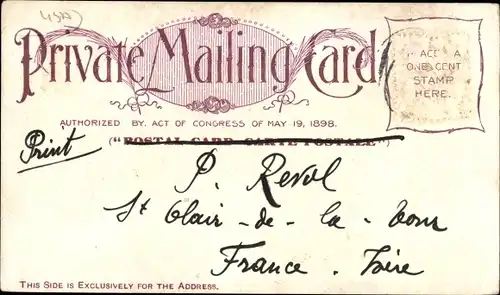 USA
Private Mailing Card
PLACE A
ONE CENT
STAMP
HERE.
AUTHORIZED BY ACT OF CONGRESS OF MAY 19, 1898.
("POSTAL CARD-CARTE POSTALE")
Print
P. Revol
St Clair-de-la-Tour
France. Isère
THIS SIDE IS EXCLUSIVELY FOR THE ADDRESS.